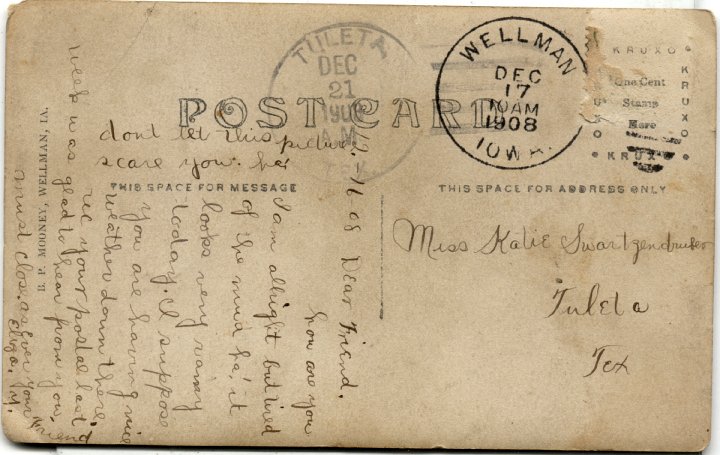 TULETA
DEC
21
1908
A.M.
TEX
WELLMAN
DEC
17
10AM
1908
IOWA.
KRUXO
KRUXO
One Cent
Stamp
Here
KRUXO
POST CARD
THIS SPACE FOR MESSAGE
THIS SPACE FOR ADDRESS ONLY
B. P. MOONEY, WELLMAN, IA.
dont let this picture
scare you. ha
12-16 08 Dear Friend.
how are you
I am allright but tired
of the mud ha, it
looks very rainy
today. I suppose
you are having nice
weather down there.
rec your postal last
week was glad to hear from you,
must close. as ever your Friend
Eliza. M.
Miss Katie Swartzendruber
Tuleta
Tex